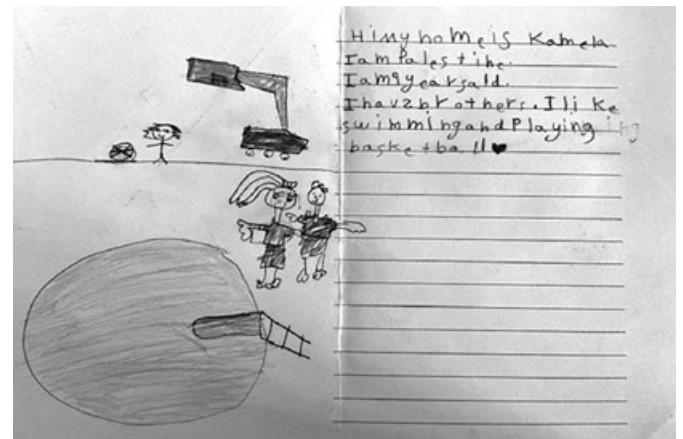 Hi my nome is Kamela
I am Palestine.
I am 9 years ald.
I hav 2 brothers. I like
swimming and Playing ing
basketball ♥